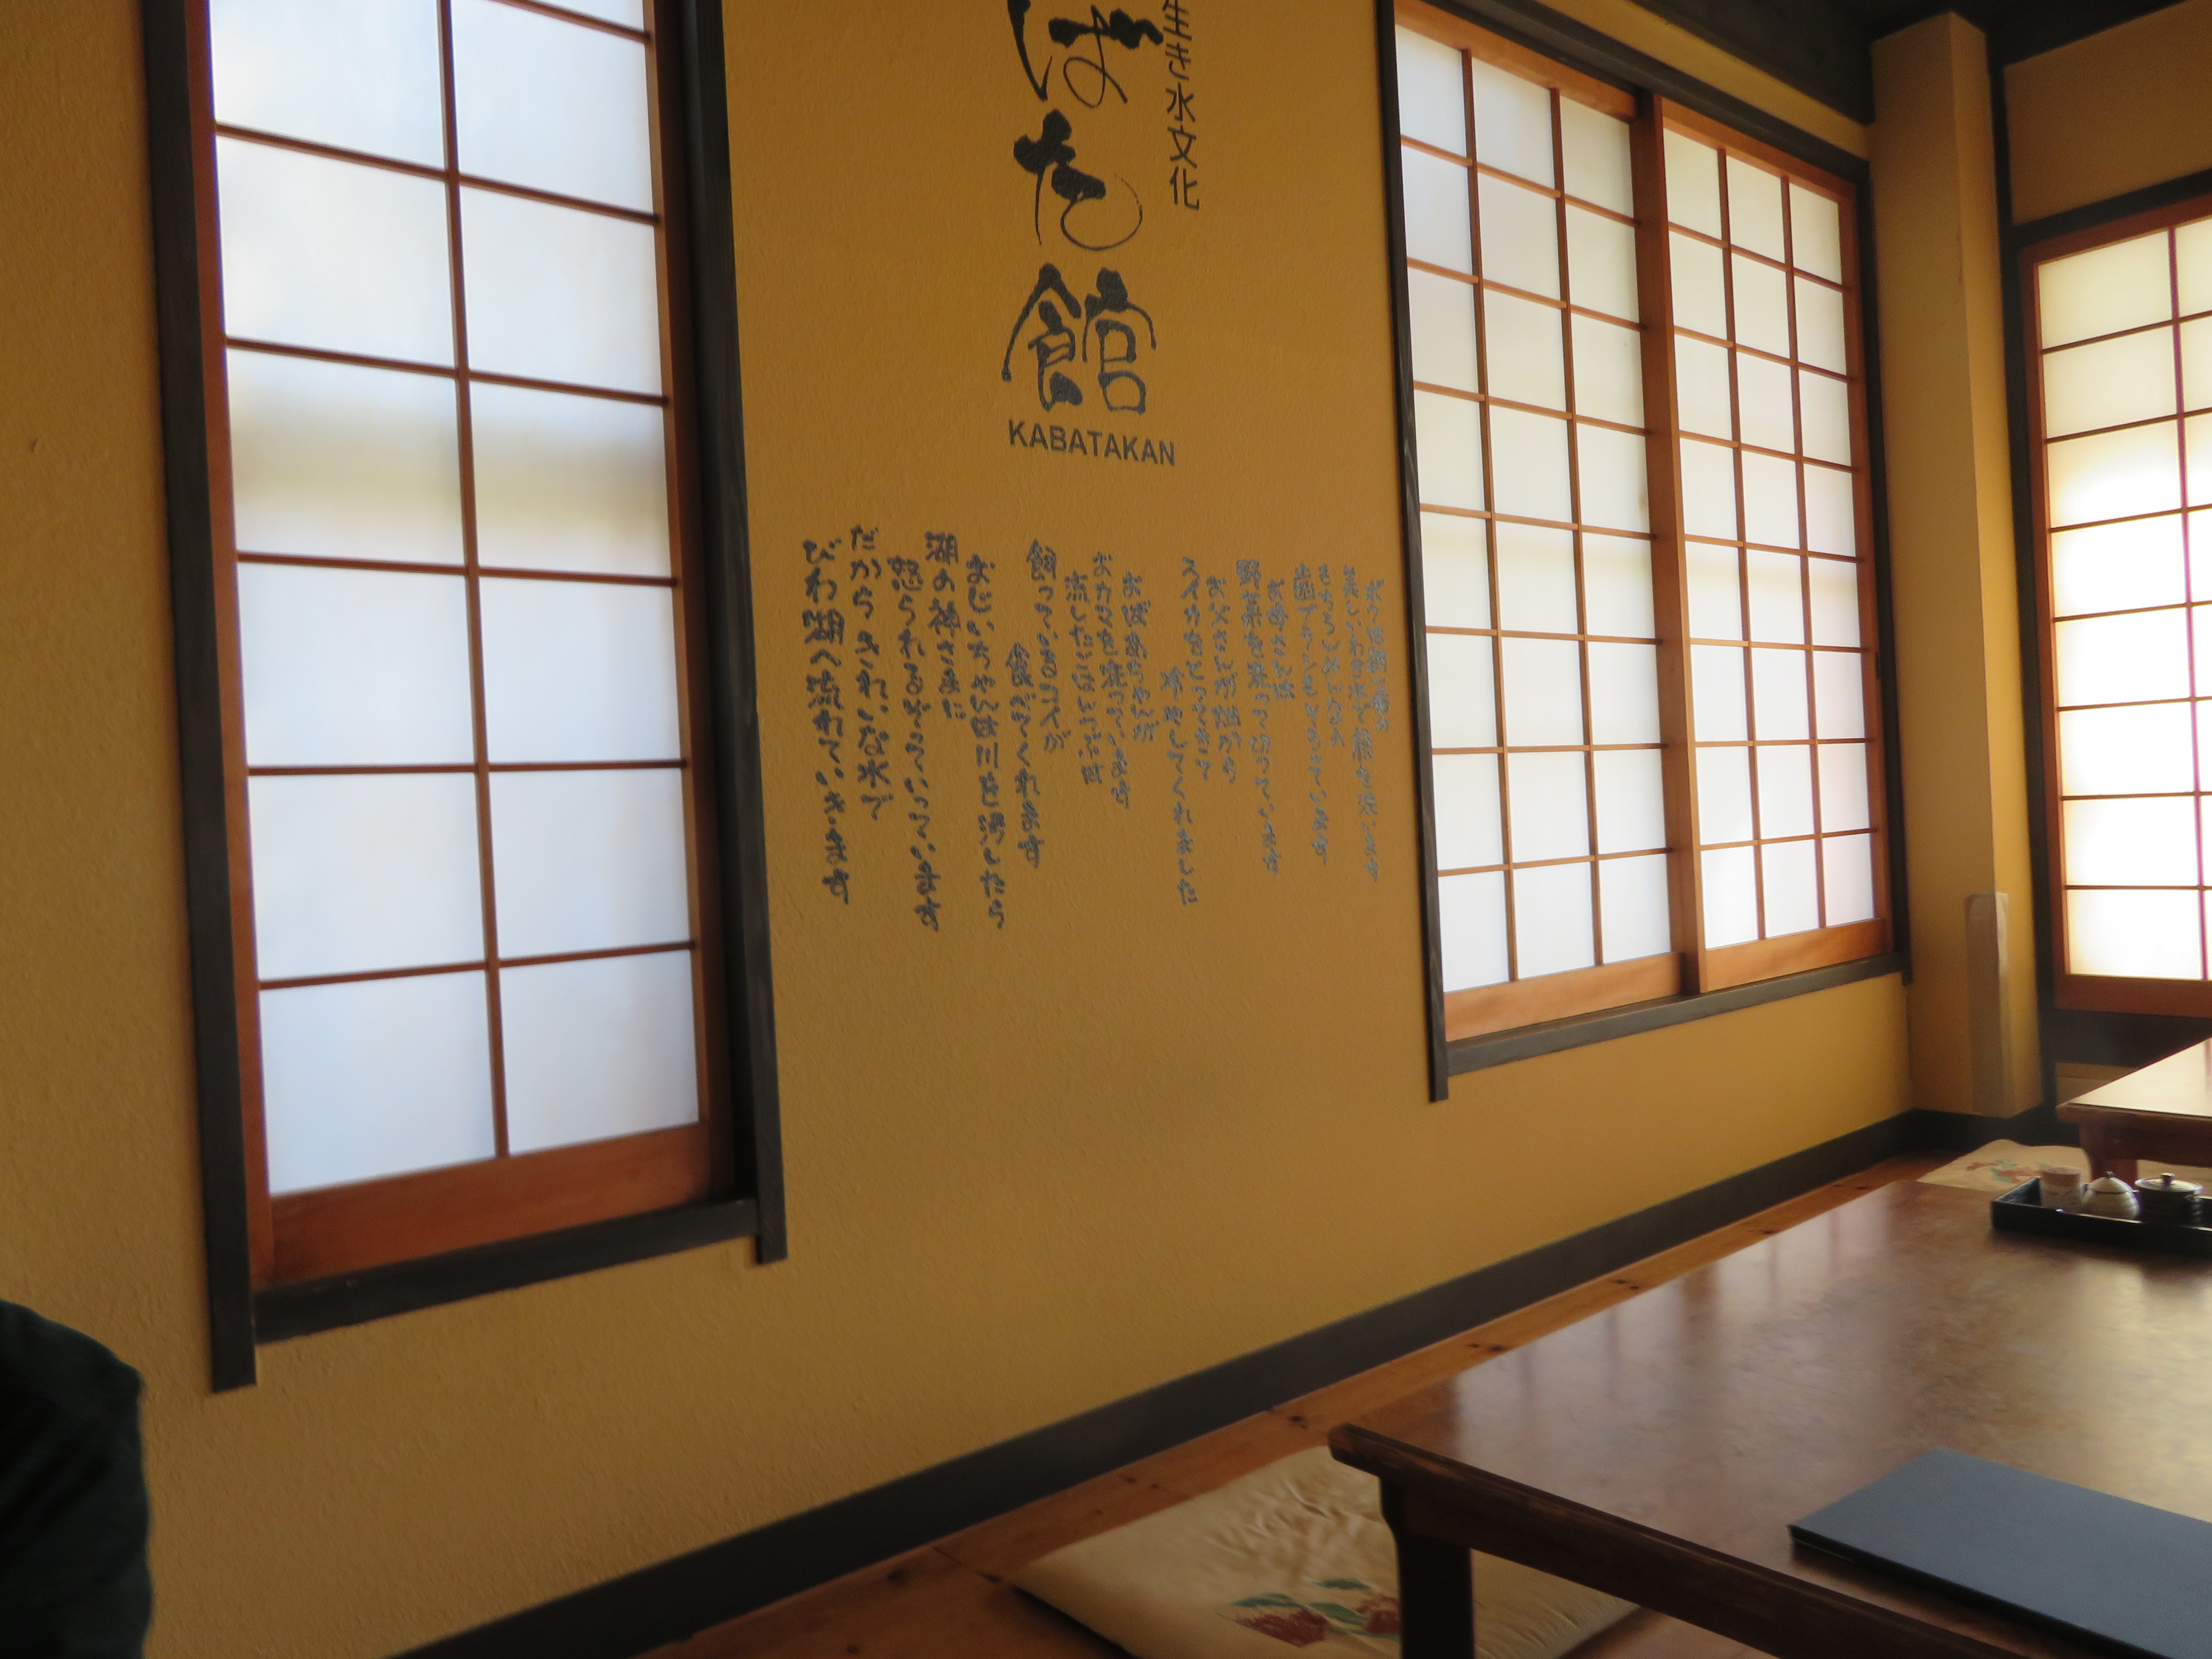 生き水文化
ばた館
KABATAKAN
美しいわき水で顔を洗います
もちろんおいしいなあ
歯ブラシもとうっています
お母さんは
野菜を洗って切っています
お父さんが畑から
スイカをとってきて
冷やしてくれました
おばあちゃんが
おカマを洗っています
流したごはんつぶは
飼っているコイが
食べてくれます
おじいちゃんは川を汚したら
湖の神さまに
怒られるぞっていっています
だからきれいな水で
びわ湖へ流れていきます